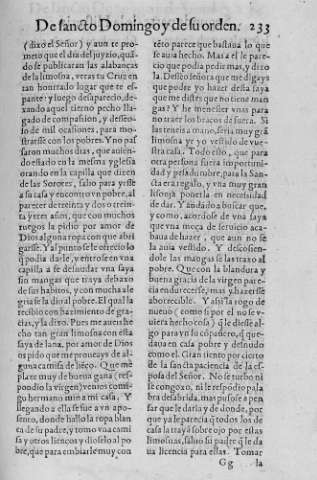 De sancto Domingo y de su orden. 233
(dixo el Señor) y aun te pro-
meto que el dia del juyzio, quã-
do se publicaran las alabanças
de la limosna, veras tu Cruz en
tan honrrado lugar que te es-
pante: y luego desaparecio, de-
xando aquel tierno pecho lla-
gado de compassion, y desseo-
so de mil ocasiones, para mo-
strarse con los pobres. Y no pas-
saron muchos dias, que auien-
do estado en la mesma yglesia
orando en la capilla que dizen
de las Sorores, salio para yrse
a su casa y encontro vn pobre, al
parecer de treinta y dos o trein-
ta y tres años, que con muchos
ruegos la pidio por amor de
Dios alguna ropa con que abri
garse. Y al punto se le ofrecio lo
q̃ podia darle, y entrose en vna
capilla a desnudar vna saya
sin mangas que traya debaxo
de sus habitos, y con mucha ale
gria se la dio al pobre. El qual la
recibio con hazimiento de gra-
cias, y la dixo. Pues me aueis he
cho tan gran limosna con essa
saya de lana, por amor de Dios
os pido que me proueays de al-
guna camisa de lieço. Que me
plaze muy de buena gana (res-
pondio la virgen) venios cõmi-
go hermano mio a mi casa. Y
llegando a ella se fue a vn apo-
sento, donde hallo la ropa blan
ca de su padre, y tomo vna cami
sa y otros lienços y dioselo al po
bre, que para embiarle muy con
tẽto parece que bastaua lo que
se auia hecho. Mas a el le pare-
cio que podia pedir mas, y dixo
la. Desseo señora que me digays
que podre yo hazer dessa saya
que me distes que no tiene man
gas? Y he menester vna para
no traer los braços de fuera. Si
las teneis a mano, seria muy grã
limosna yr yo vestido de vue-
stra casa. Todo esto, que para
otra persona fuera importuni-
dad y pesadumbre, para la San-
cta era regalo, y vna muy gran
lisonja ponerla en necessidad
de dar. Y andado a buscar que,
y como, acordose de vna saya
que vna moça de seruicio aca-
baua de hazer, que aun no se
la auia vestido. Y descosien-
dole las mangas se las traxo al
pobre. Que con la blandura y
buena gracia de la virgen pare-
cia endurecerse, mas y hazerse
aborrecible. Y assi la rogo de
nueuo (como si por el no se v-
uiera hecho cosa) q̃ le diesse al-
go para vn su cõpañero, q̃ que-
daua en casa pobre y desnudo
como el. Gran tiento por cierto
de la sancta paciencia de la es-
posa del Señor. No se turbo ni
se congoxo, ni le respõdio pala
bra desabrida, mas pusose a pen
sar que le daria y de donde, por
que ya le parecia q̃ todos los de
casa la traya sobre ojo por essas
limosnas, saluo su padre q̃ le da
ua licencia para ellas. Tomar
Gg la